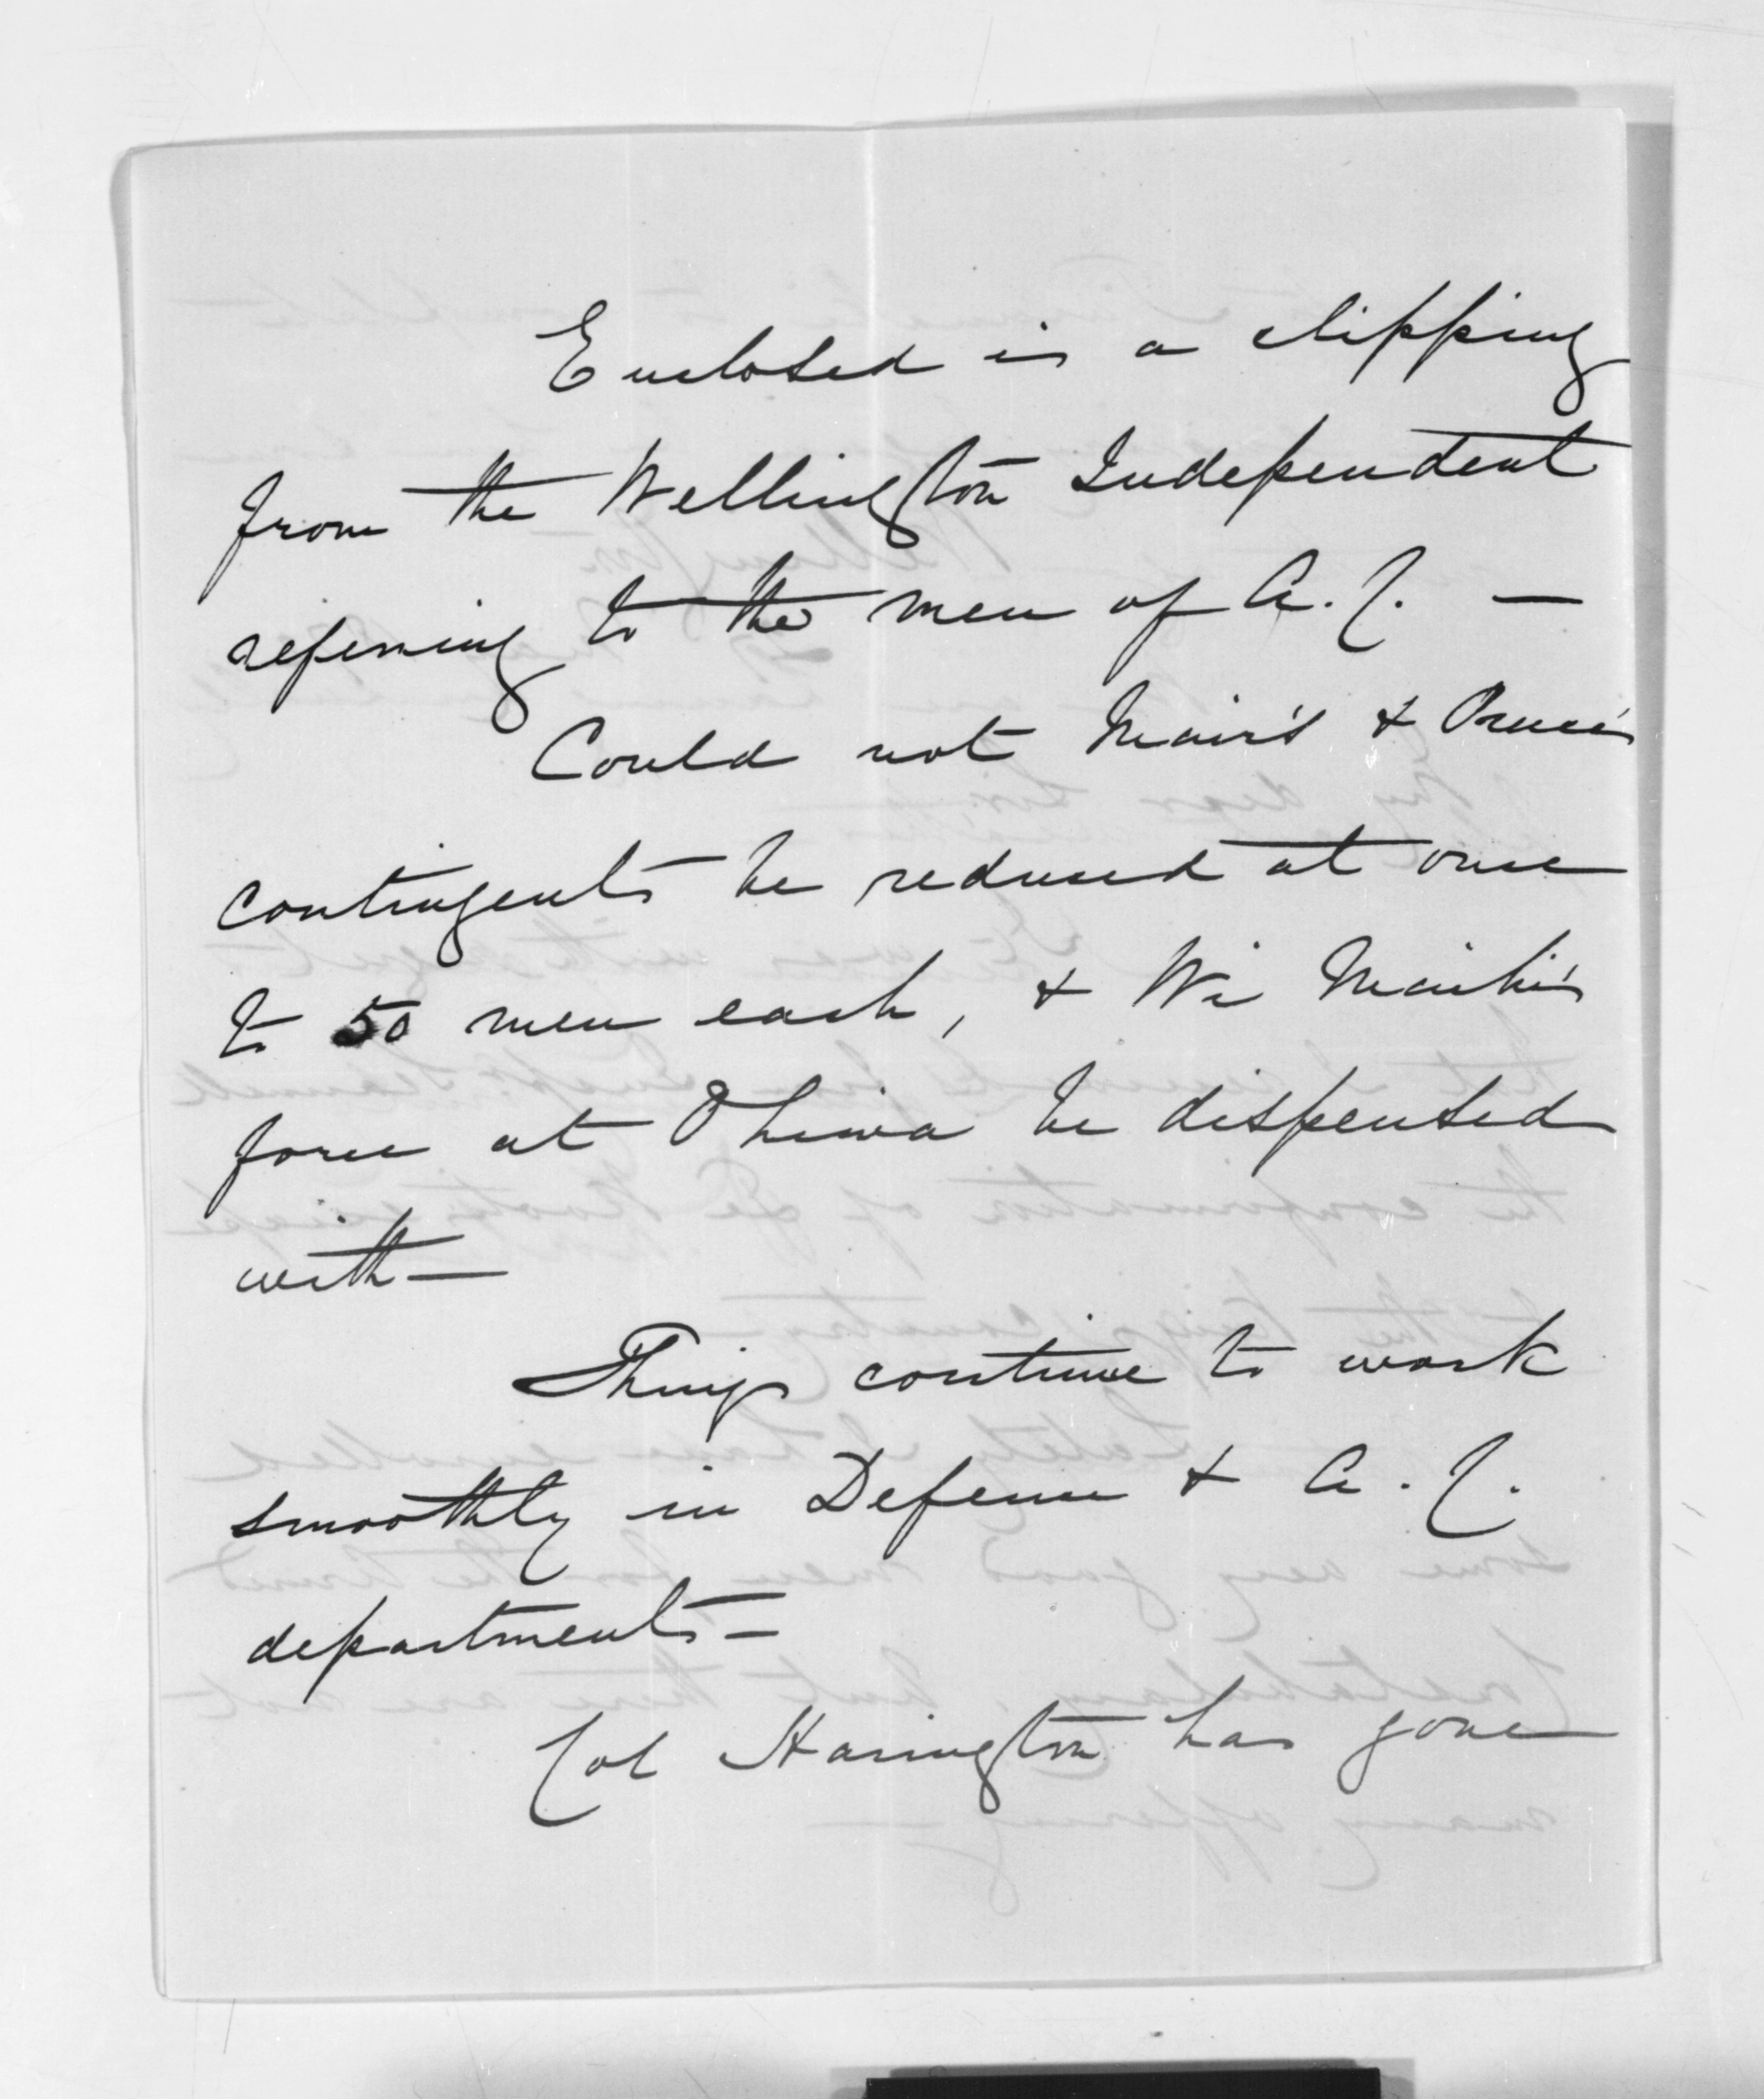 Enclosed is a clipping
from the Wellington Independent
referring to the men of A.C. —
Could not Mair's &
contingents be reduced at once
to 50 men each, & Wi Maihi's
force at Ohiwa be dispensed
with —
Things continue to work
smoothly in Defence & A.C.
departments —
Col Harington has gone